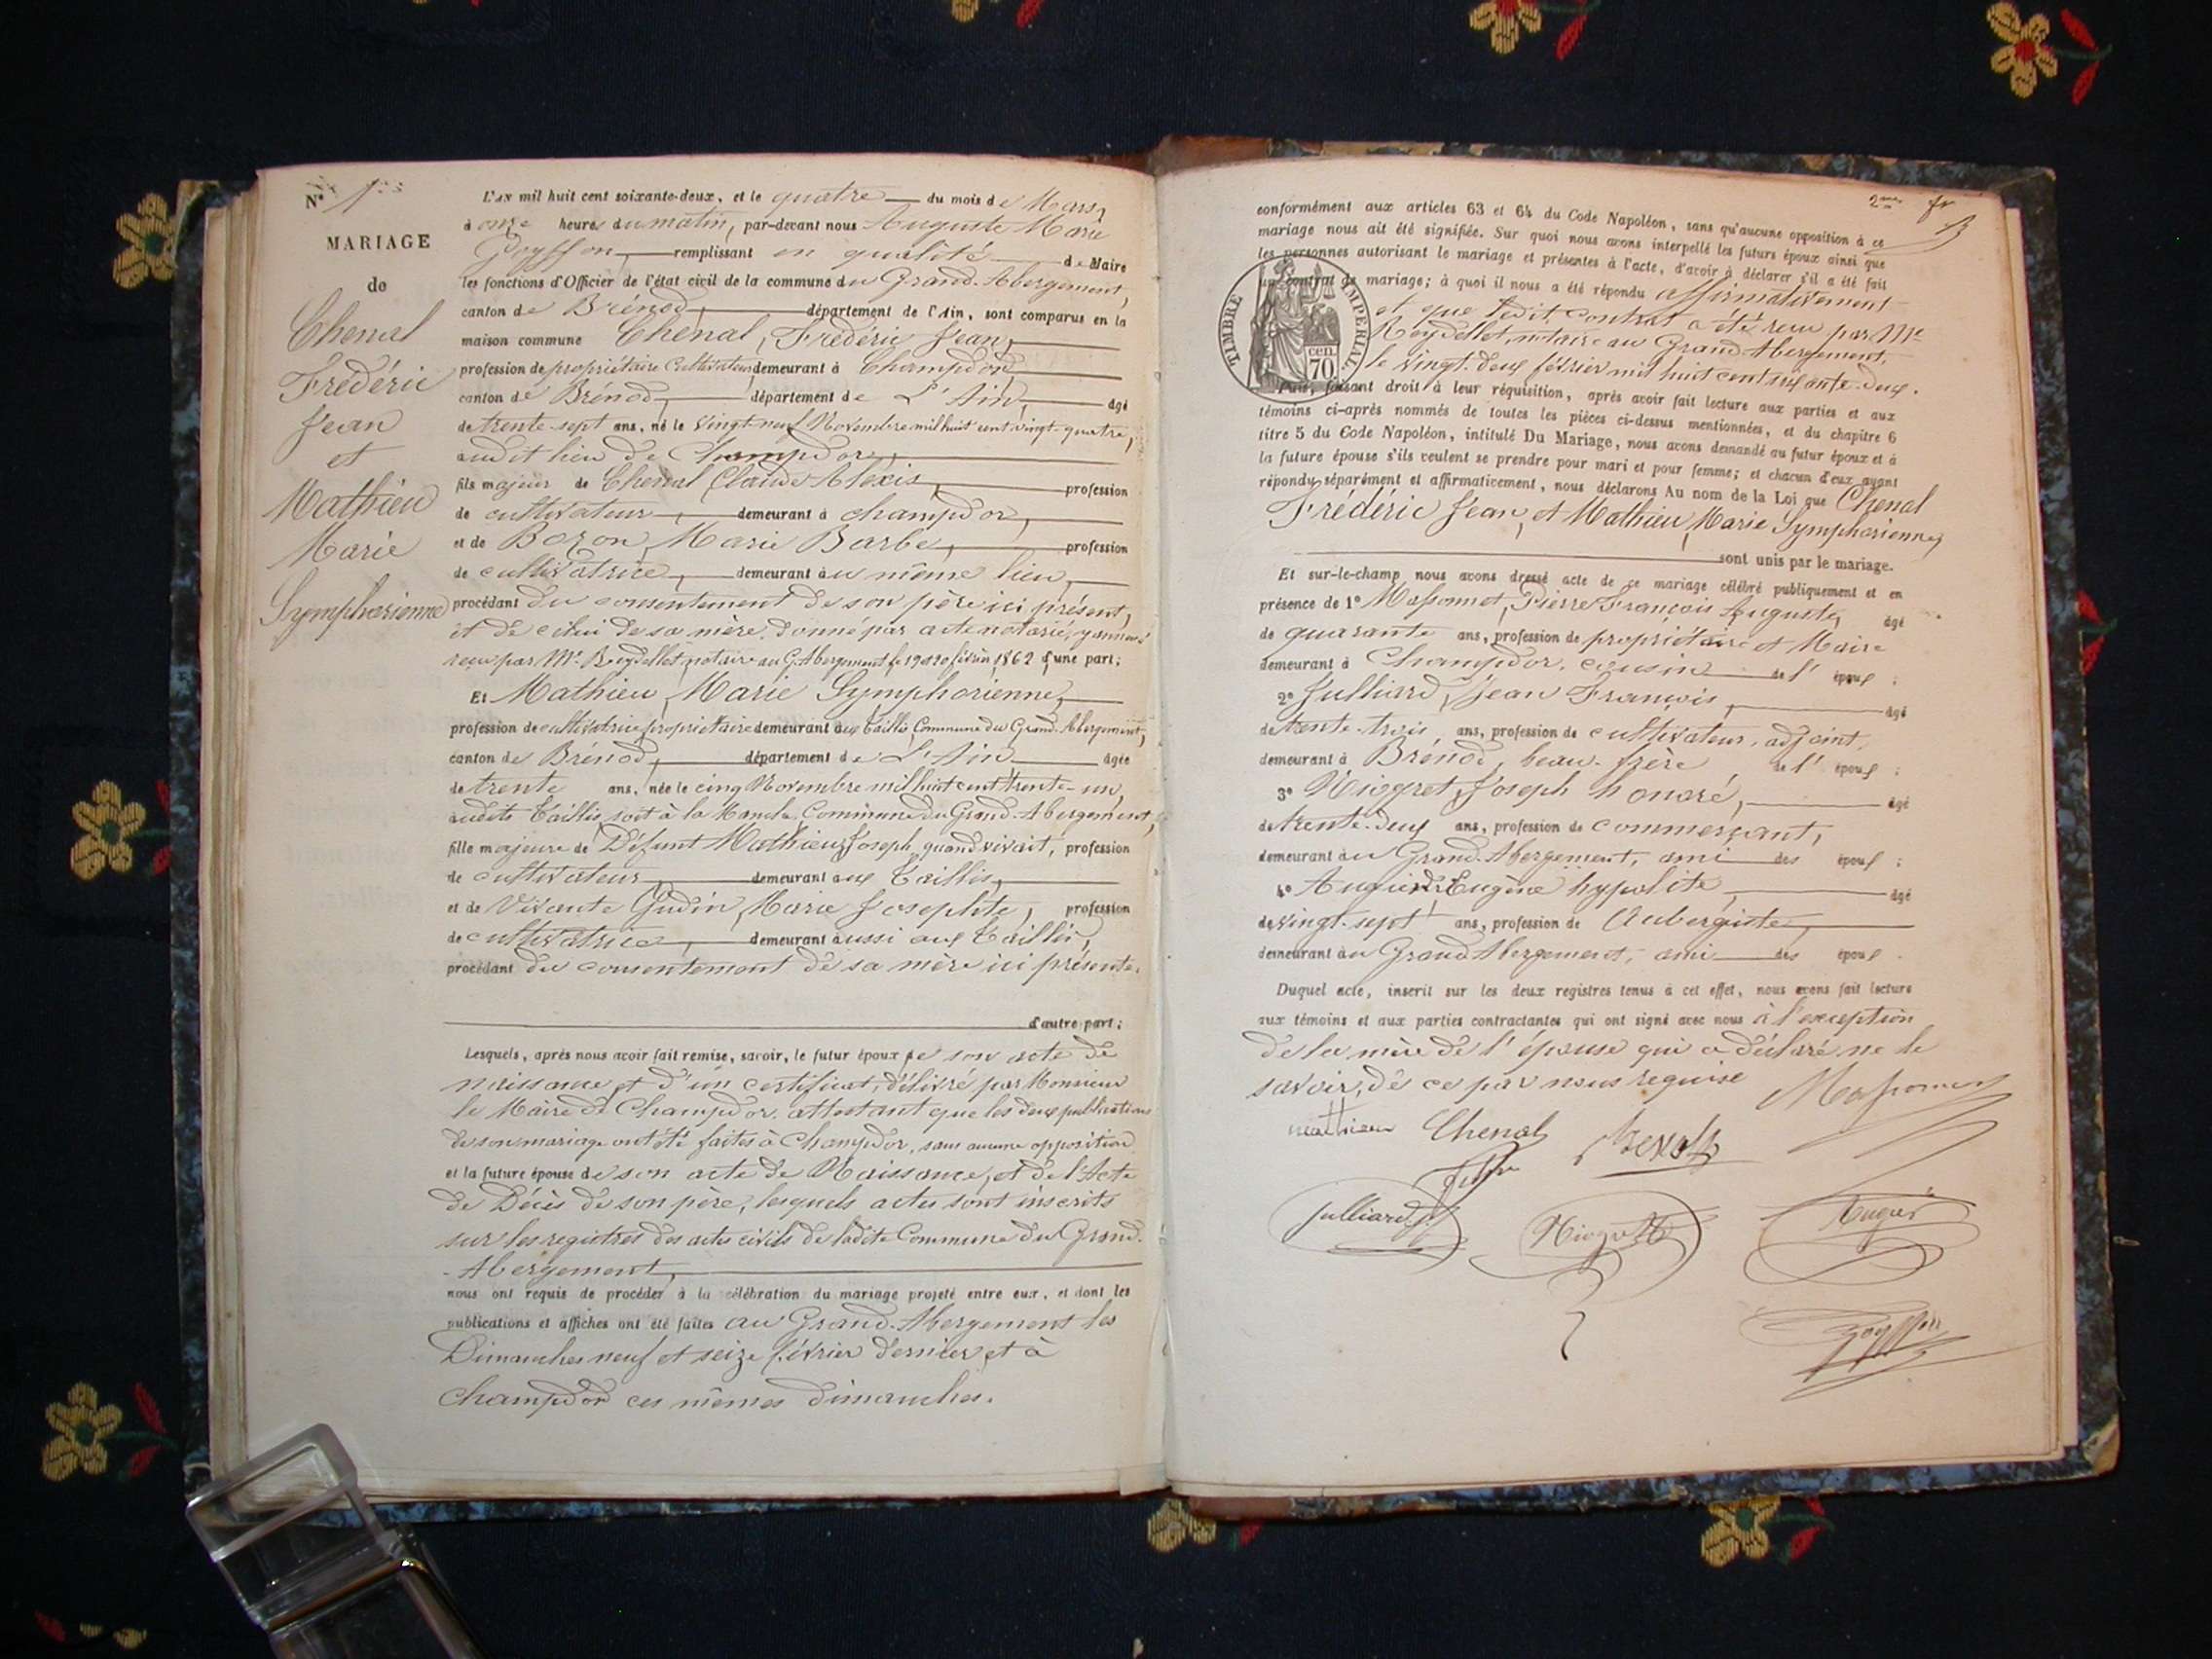 N° 1er
MARIAGE
de
Chenal
Frédéric
Jean
et
Mathieu
Marie
Symphorienne
L'an mil huit cent soixante-deux, et le quatre du mois de Mars,
à onze heures du matin, par-devant nous Auguste Marie
remplissant en qualité de Maire
les fonctions d'Officier de l'état civil de la commune du Grand-Abergement,
canton de Brénod, département de l'Ain, sont comparus en la
maison commune Chenal, Frédéric Jean,
profession de propriétaire Cultivateur, demeurant à Champdor,
canton de Brénod, département de L'Ain, âgé
de trente-sept ans, né le vingt-neuf Novembre mil huit cent vingt-quatre,
audit lieu de Champdor,
fils majeur de Chenal Claude Alexis, profession
de cultivateur, demeurant à champdor,
et de Bozon, Marie Barbe, profession
de cultivatrice, demeurant au même lieu,
procédant du consentement de son père ici présent,
et de celui de sa mère, donné par acte notarié,
reçu par Me Reydellet notaire au G. Abergement le 19 et 20 février 1862 d'une part;
Et Mathieu, Marie Symphorienne,
profession de cultivatrice propriétaire demeurant aux Taillis, Commune du Grand-Abergement,
canton de Brénod, département de L'Ain âgée
de trente ans, née le cinq Novembre mil huit cent trente-un,
audits Taillis, soit à la Manche, Commune du Grand-Abergement,
fille majeure de Défunt Mathieu, Joseph, quand vivait, profession
de cultivateur, demeurant aux Taillis,
et de Vivante Gudin, Marie Josephte, profession
de cultivatrice, demeurant aussi aux Taillis,
procédant du consentement de sa mère ici présente.
d'autre part;
Lesquels, après nous avoir fait remise, savoir, le futur époux de son acte de
naissance et d'un certificat, délivré par Monsieur
le Maire de Champdor, attestant que les deux publications
de son mariage ont été faites à Champdor, sans aucune opposition
et la future épouse de son acte de Naissance, et de l'Acte
de Décès de son père, lesquels actes sont inscrits
sur les registres des actes civils de ladite Commune du Grand-
-Abergement,
nous ont requis de procéder à la célébration du mariage projeté entre eux, et dont les
publications et affiches ont été faites au Grand-Abergement les
Dimanches neuf et seize février dernier, et à
Champdor ces mêmes dimanches.
2me
conformément aux articles 63 et 64 du Code Napoléon, sans qu'aucune opposition à ce
mariage nous ait été signifiée. Sur quoi nous avons interpellé les futurs époux ainsi que
les personnes autorisant le mariage et présentes à l'acte, d'avoir à déclarer s'il a été fait
un contrat de mariage; à quoi il nous a été répondu affirmativement
et que ledit contrat a été reçu par Me
Reydellet, notaire au Grand Abergement,
le vingt-deux février mil huit cent soixante-deux.
TIMBRE IMPERIAL
cen. 70
Puis, faisant droit à leur réquisition, après avoir fait lecture aux parties et aux
témoins ci-après nommés de toutes les pièces ci-dessus mentionnées, et du chapitre 6
titre 5 du Code Napoléon, intitulé Du Mariage, nous avons demandé au futur époux et à
la future épouse s'ils veulent se prendre pour mari et pour femme; et chacun d'eux ayant
répondu séparément et affirmativement, nous déclarons Au nom de la Loi que Chenal
Frédéric Jean, et Mathieu, Marie Symphorienne,
sont unis par le mariage.
Et sur-le-champ nous avons dressé acte de ce mariage célébré publiquement et en
présence de 1° Massonnet, Pierre François Auguste, âgé
de quarante ans, profession de propriétaire et Maire
demeurant à Champdor, cousin de l'époux;
2° Julliard, Jean François, âgé
de trente-trois, ans, profession de cultivateur, adjoint,
demeurant à Brénod, beau-frère de l'époux;
3° Niogret, Joseph honoré, âgé
de trente-deux ans, profession de commerçant,
demeurant au Grand-Abergement, ami des époux;
4° Eugène hypolite, âgé
de vingt-sept ans, profession de Aubergiste,
demeurant au Grand Abergement, ami des époux.
Duquel acte, inscrit sur les deux registres tenus à cet effet, nous avons fait lecture
aux témoins et aux parties contractantes qui ont signé avec nous à l'exception
de la mère de l'épouse qui a déclaré ne le
savoir, de ce par nous requise
mathieu Chenal
Julliard